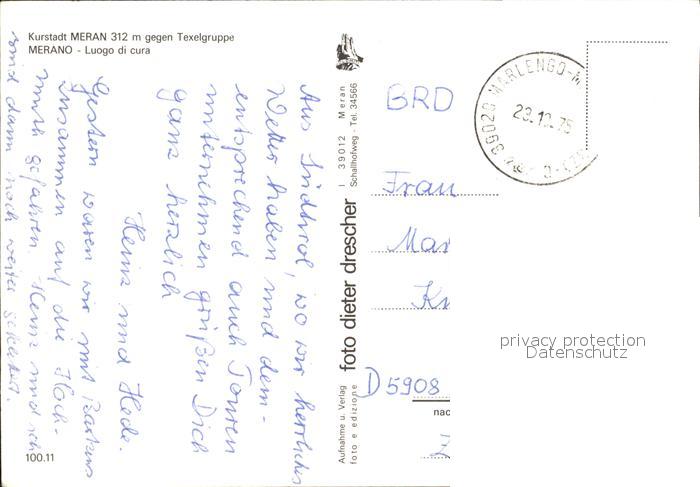 Kurstadt MERAN 312 m gegen Texelgruppe
MERANO - Luogo di cura
Aus Südtirol, wo wir herrliches
Wetter haben und dem-
entsprechend auch Touren
unternehmen grüßen Dich
ganz herzlich
Heinz und Hede.
Gestern waren wir mit
zusammen auf die Hoch-
muth gefahren. Heinz und ich
sind dann noch weiter
100.11
Aufnahme u. Verlag
foto e edizione
foto dieter drescher
I 39012 Meran
Schallhofweg - Tel. 34566
39020 MARLENGO-M
BRD
Frau
Mar
D 5908
nac
privacy protection
Datenschutz